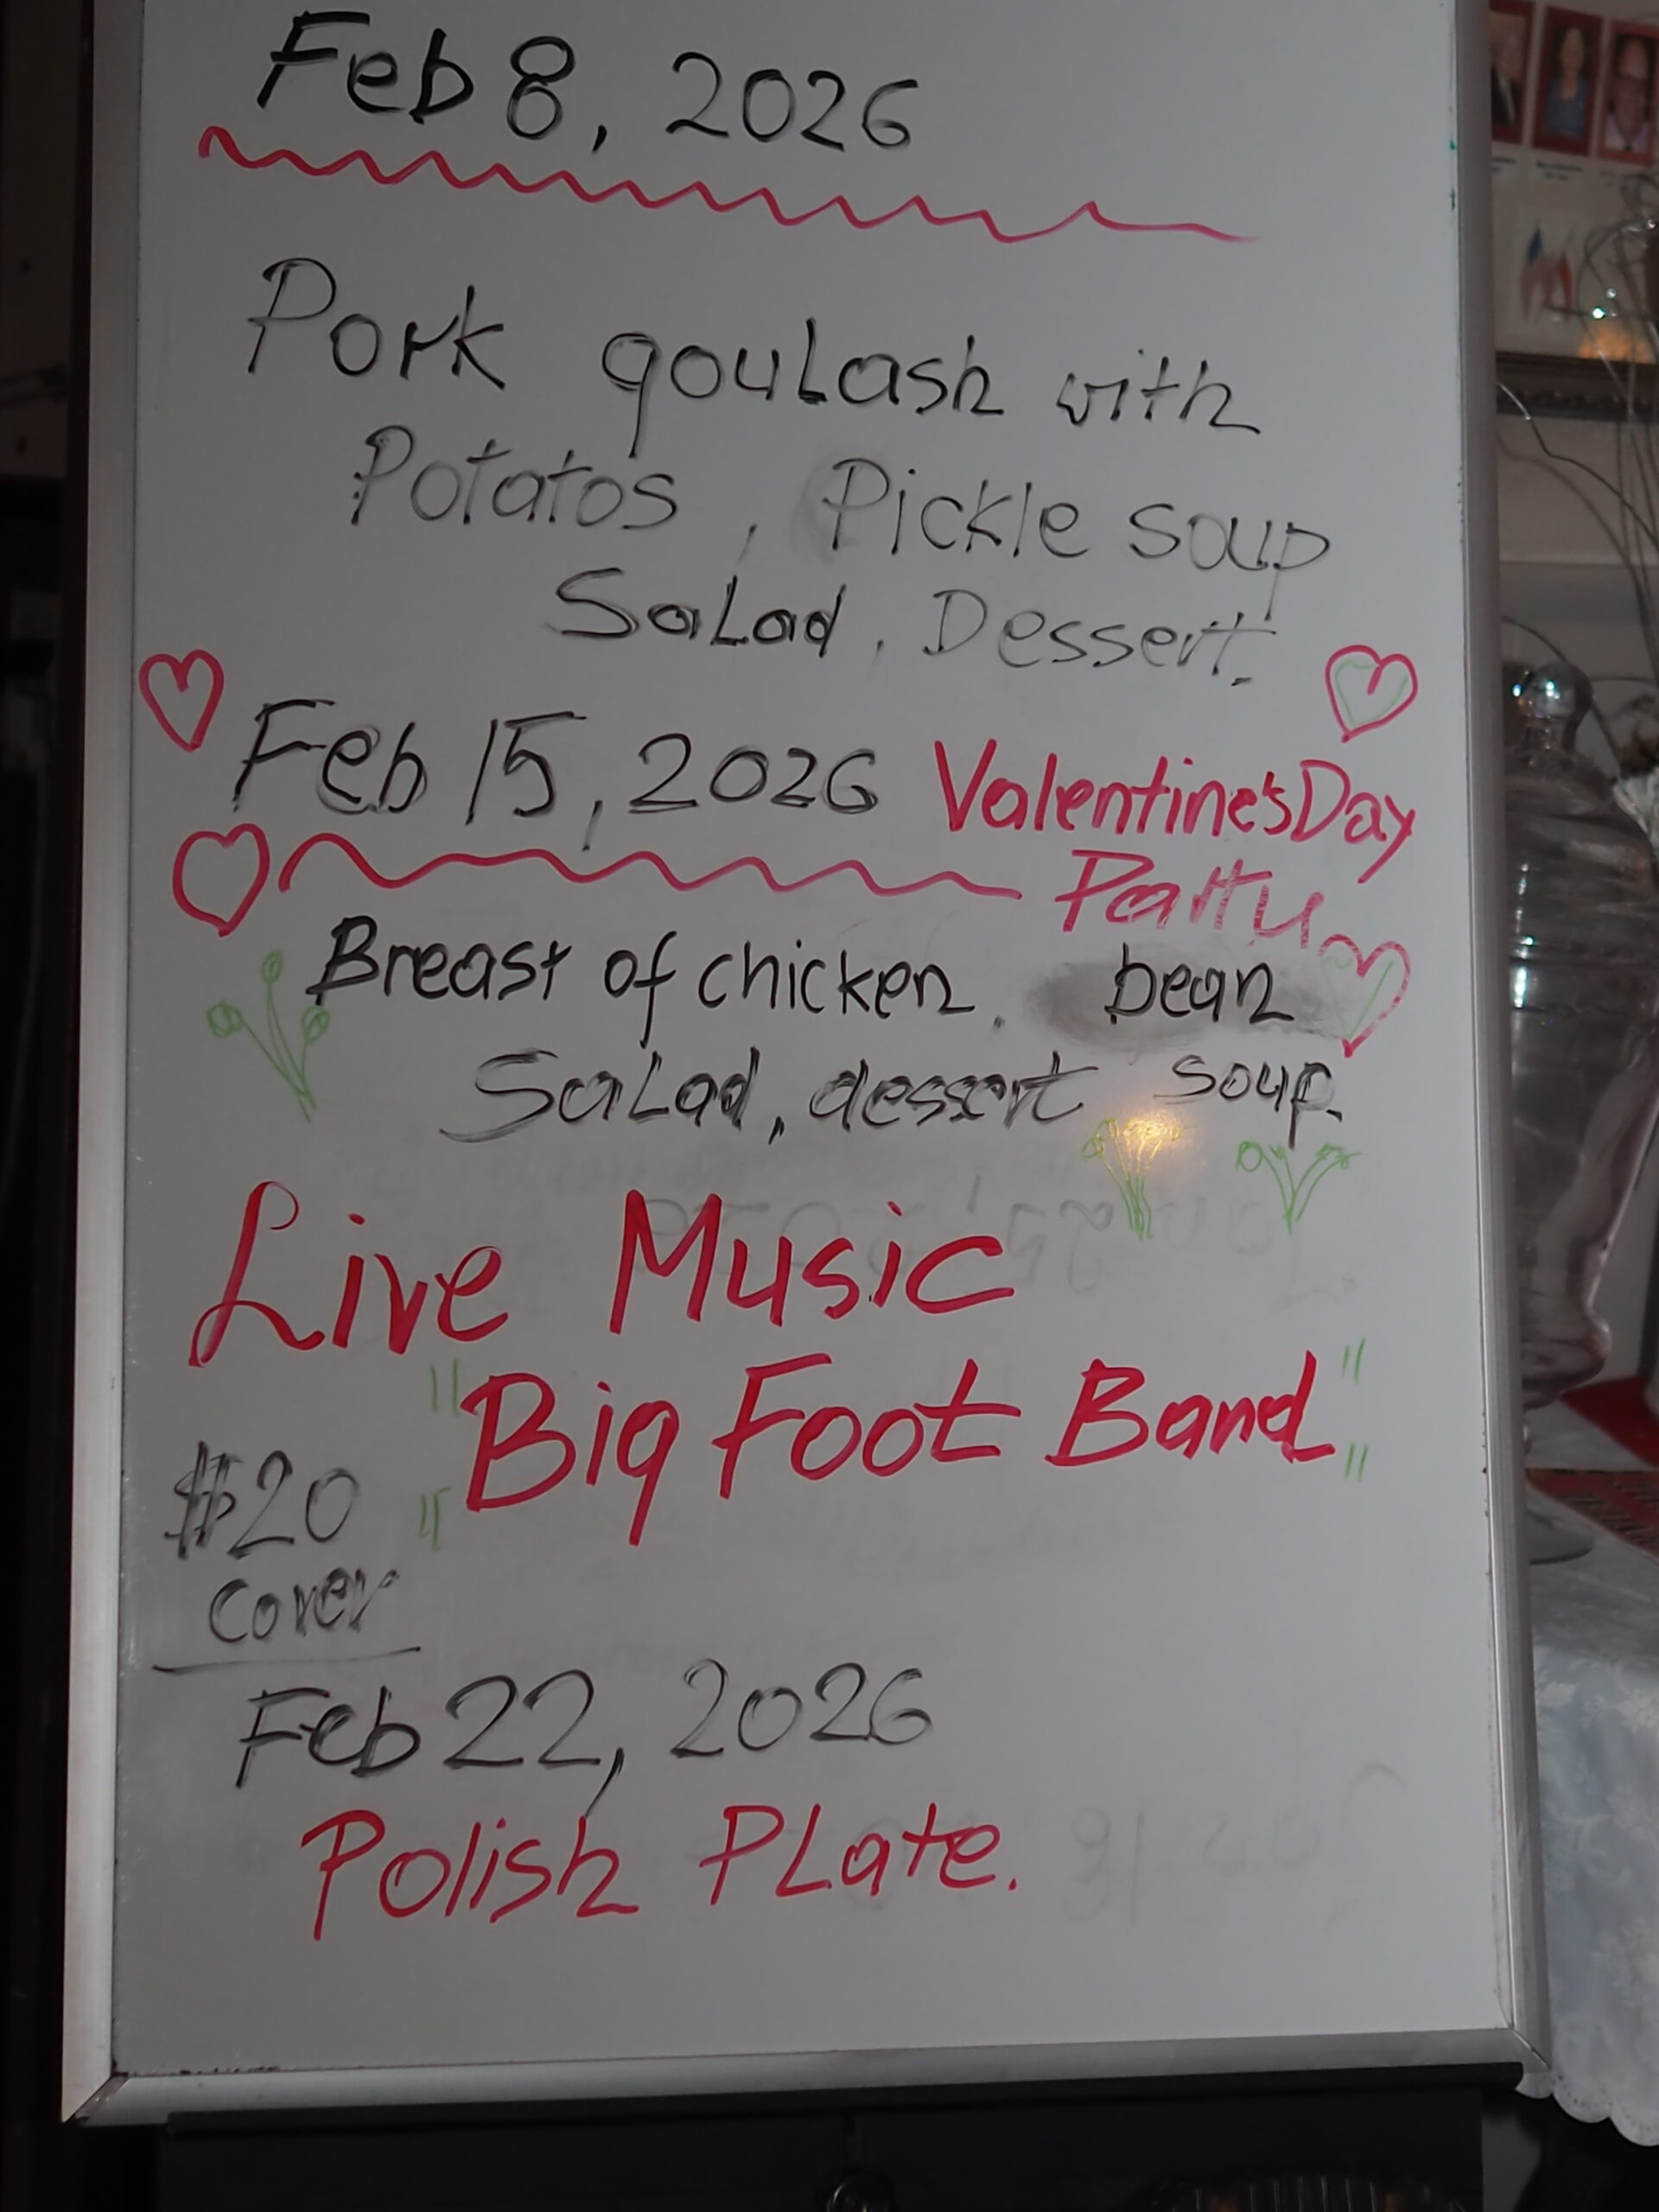 Feb 8, 2026
Pork goulash with
Potatos, Pickle soup
Salad, Dessert.
Feb 15, 2026 Valentine's Day
Party
Breast of chicken, bean
Salad, dessert soup.
Live Music
"Big Foot Band"
$20
Cover
Feb 22, 2026
Polish Plate.